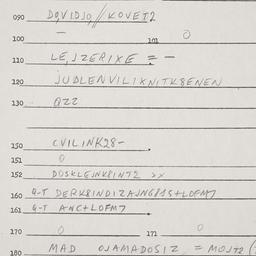 090 DOVIDJO//KOVET2
100 — 101 0
110 LEJZERIXE = —
120 JUDLENVILIXNITK8ENEN
130 OZZ
150 CVILINK28-
151 0
152 DOSKLEJNK8INT2 >x
160 G-T DERK8INDIZAJNG81S+LOFM7
161 G-T ANC+LOFM7
170 0 171 0
180 MAD OJAMADOSIZ = MOJT2